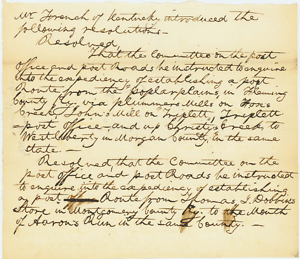 Mr French of Kentucky introduced the
following resolutions—
Resolved
That the Committee on the post
Office and post Roads be instructed to enquire
into the expediency of establishing a post
Route from the Poplar plains in Fleming
County Ky, via plummers Mills on Fox
Creek, John's Mill on Triplett, Triplett
post office and up Christys Creek, to
West liberty in Morgan County, in the same
state. —
Resolved that the Committee on the
post office and post Roads be instructed
to enquire into the expediency of establishing
a post Route from Thomas, J. Dobbins
Store in Montgomery County Ky. to the Mouth
of Aaron's Run in the same County. —